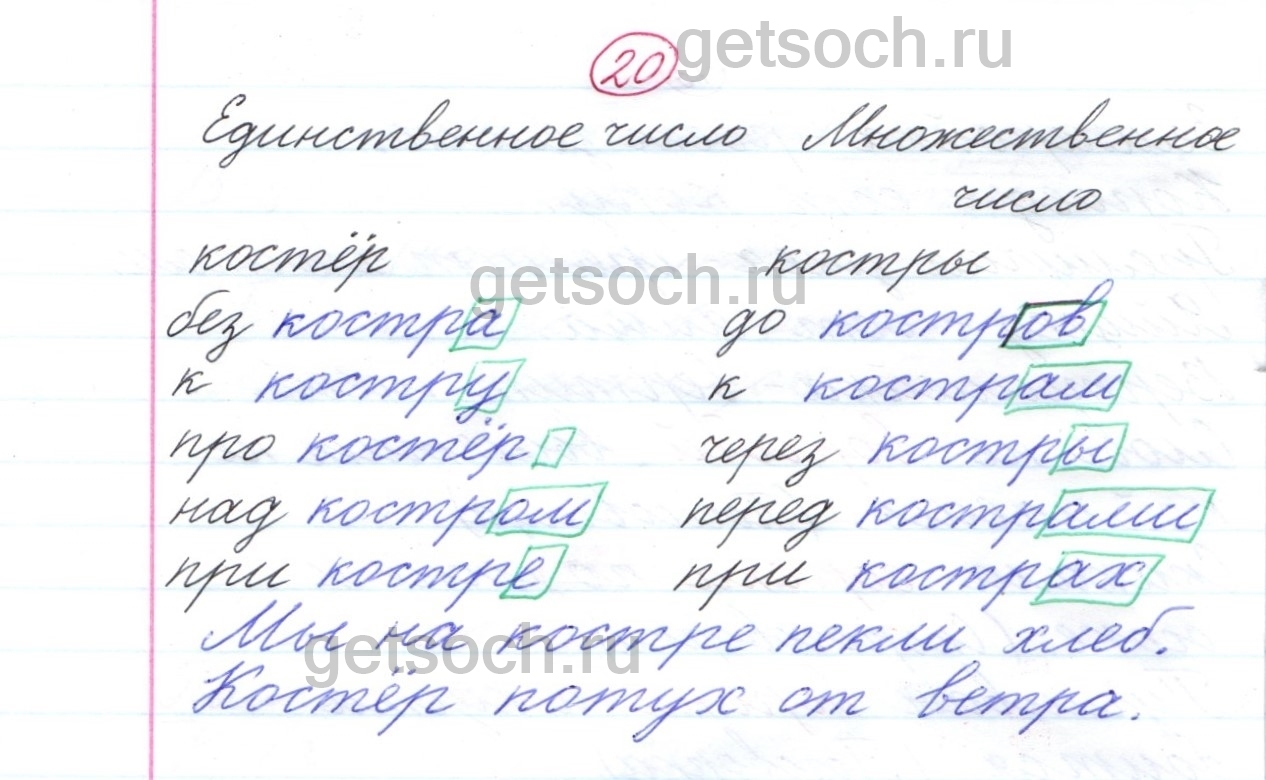 20 getsoch.ru
Единственное число Множественное
число
костёр костры
getsoch.ru
без костра до костров
к костру к кострам
про костёр через костры
над костром перед кострами
при костре при кострах
Мы на костре пекли хлеб.
getsoch.ru
Костёр потух от ветра.